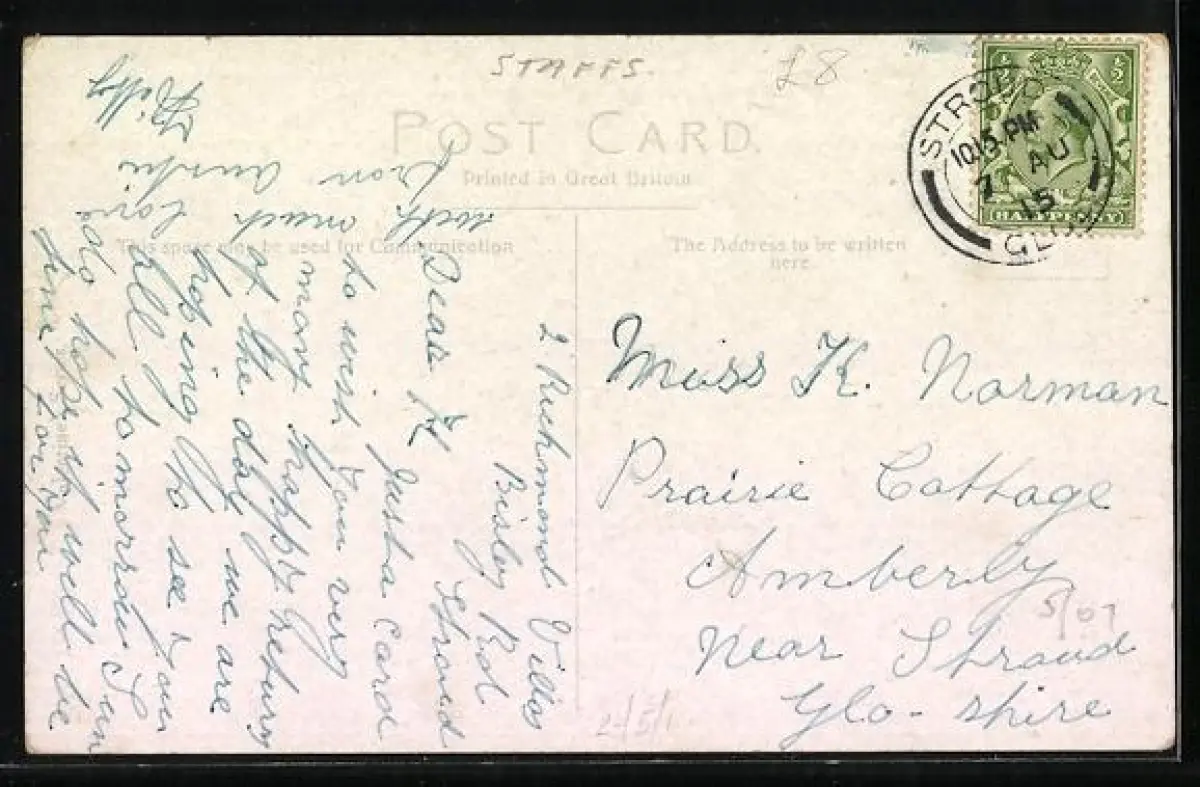 STAFFS.
£8
POST CARD.
Printed in Great Britain
This space may be used for Communication
The Address to be written
here.
STROUD
10.15 PM
7 AU
15
GLOS
HALFPENNY
2 Richmond Villas
Bisley Rd
Stroud
Dear K
Just a card
to wish you very
many happy returns
of the day we are
hoping to see you
all to morrow I
do hope it will be
fine for you
with much love
from auntie
Miss K. Norman
Prairie Cottage
Amberly
Near Stroud
Glo-shire